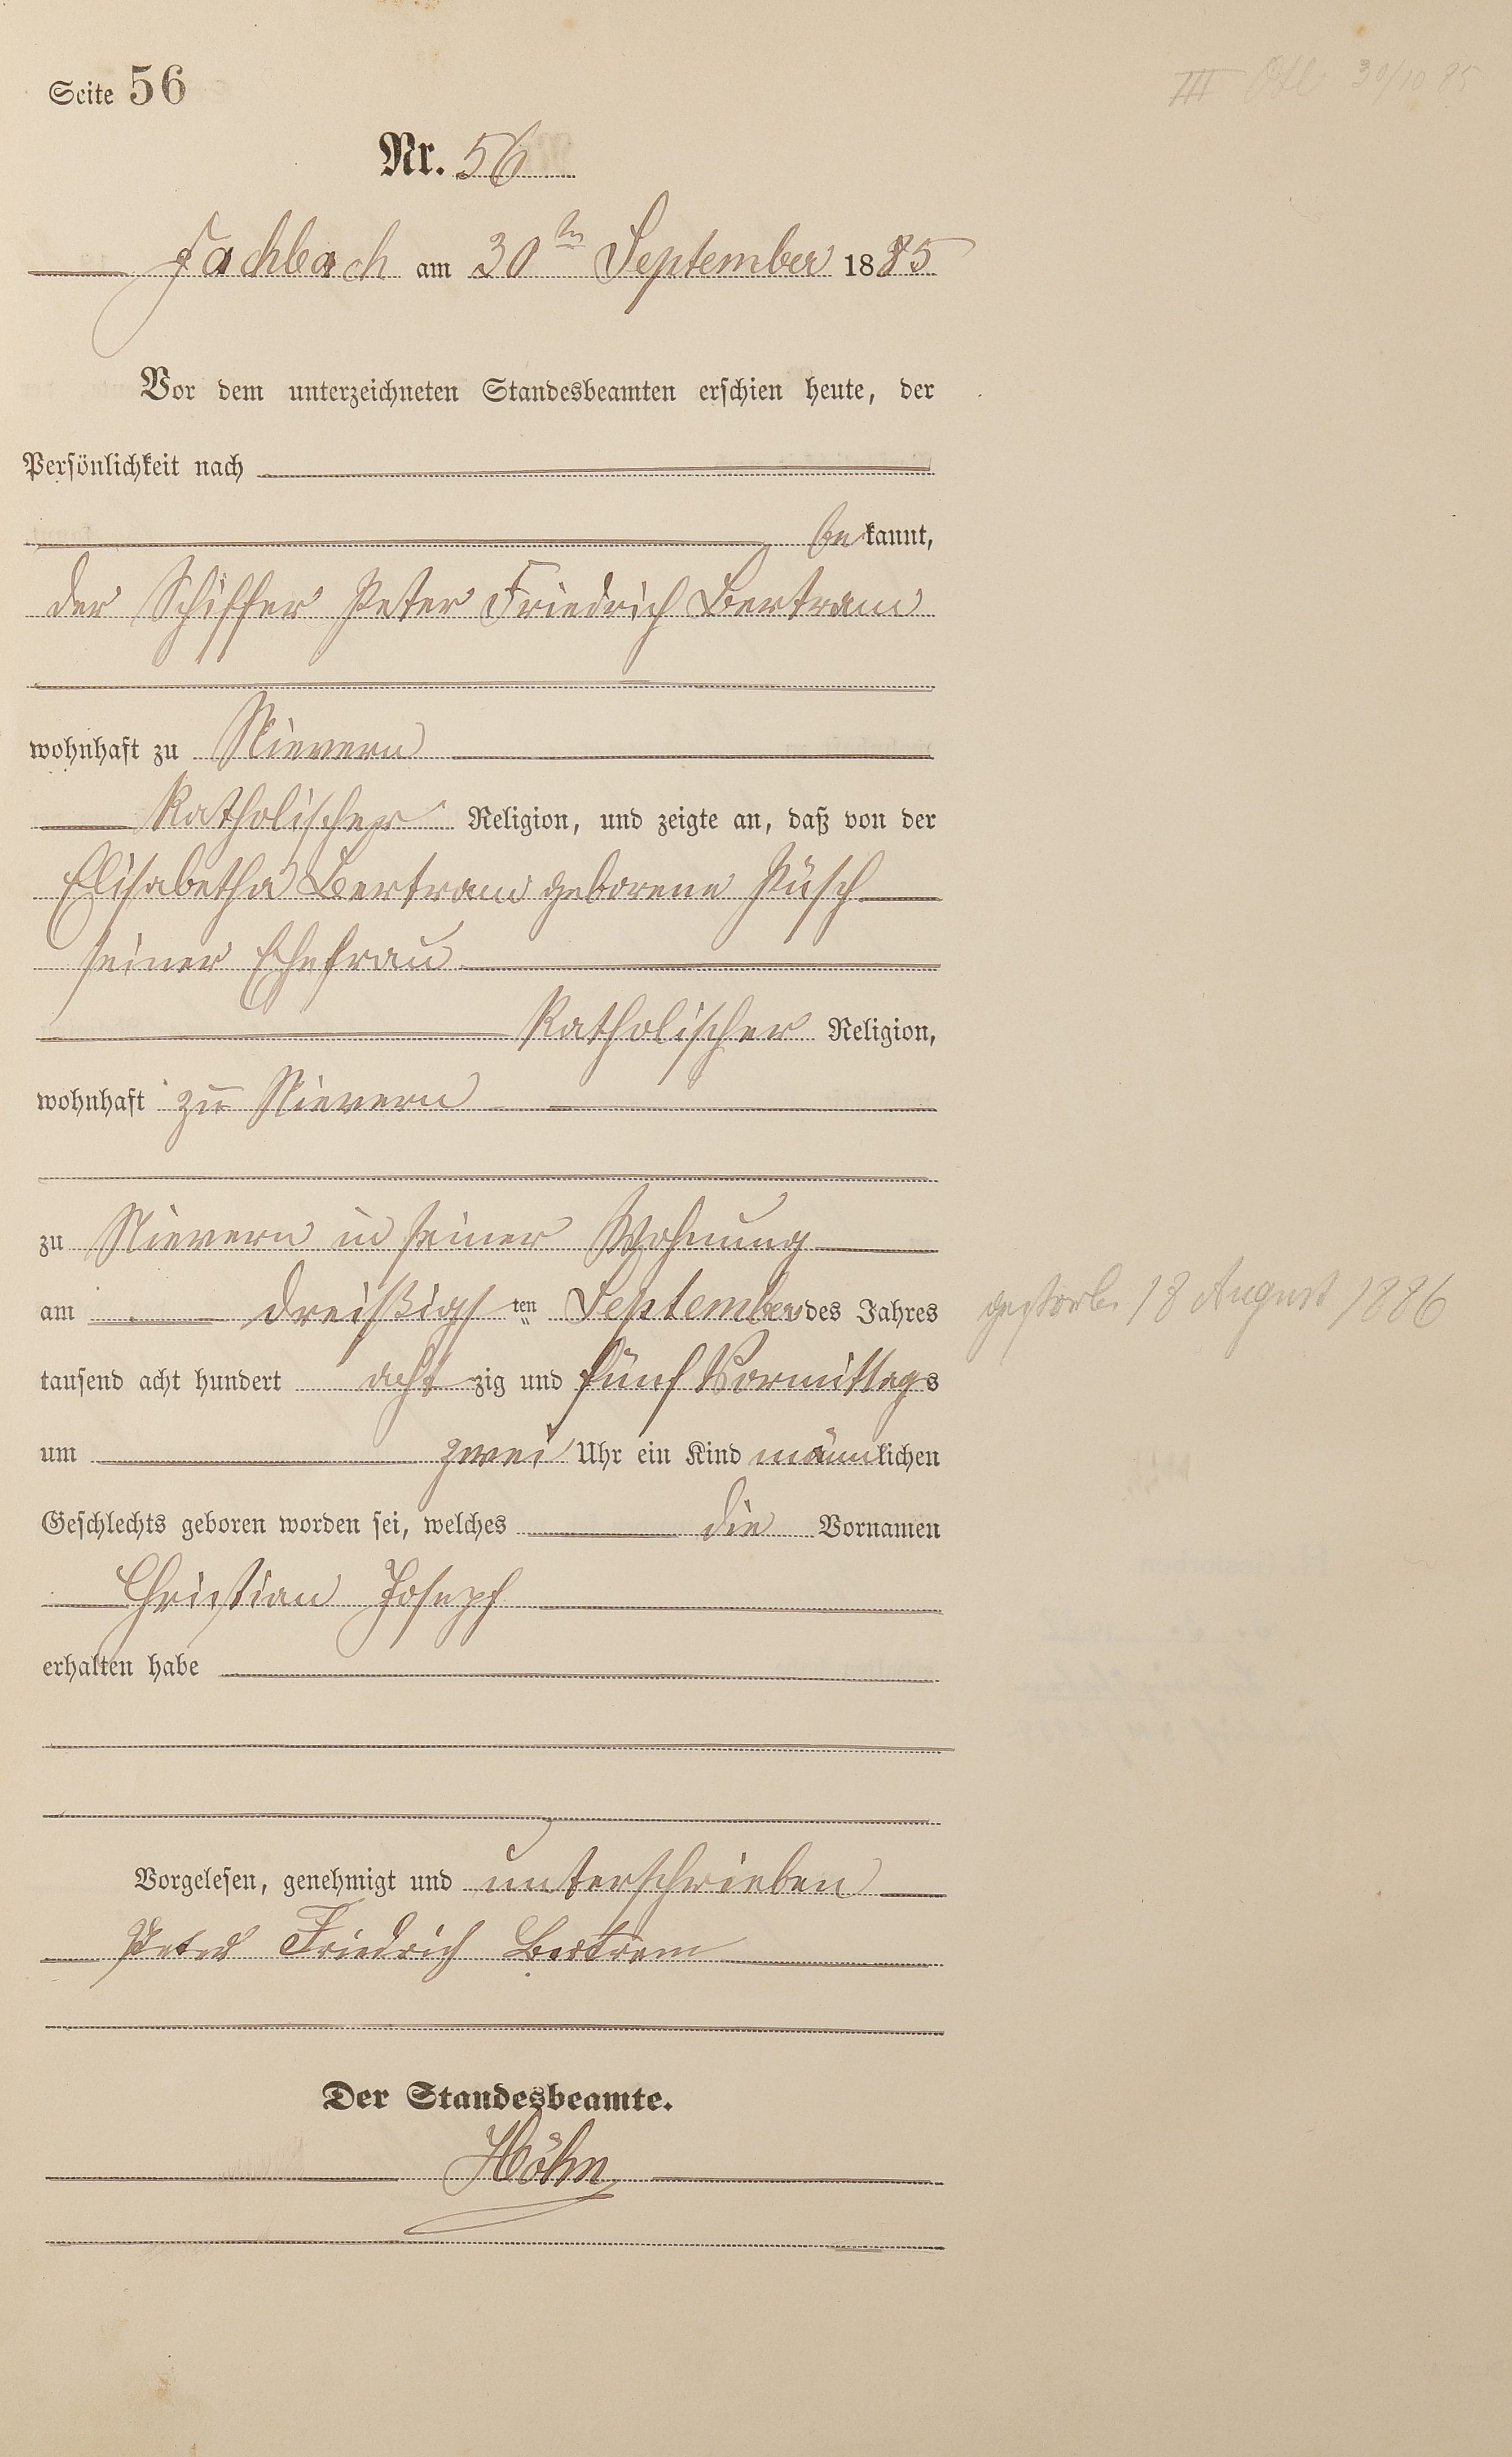 Seite 56
Nr. 56
Fachbach am 30ten September 1885
Vor dem unterzeichneten Standesbeamten erschien heute, der
Persönlichkeit nach
bekannt,
der Schiffer Peter Friedrich Bertram
wohnhaft zu Nievern
Katholischer Religion, und zeigte an, daß von der
Elisabetha Bertram geborene Püsch
seiner Ehefrau
Katholischer Religion,
wohnhaft zu Nievern
zu Nievern in seiner Wohnung
am dreißigsten September des Jahres
tausend acht hundert achtzig und fünf Vormittags
um zwei Uhr ein Kind männlichen
Geschlechts geboren worden sei, welches die Vornamen
Christian Joseph
erhalten habe
Vorgelesen, genehmigt und unterschrieben
Peter Friedrich Bertram
Der Standesbeamte.
Höhn
III 30/10 85
gestorb. 18 August 1886